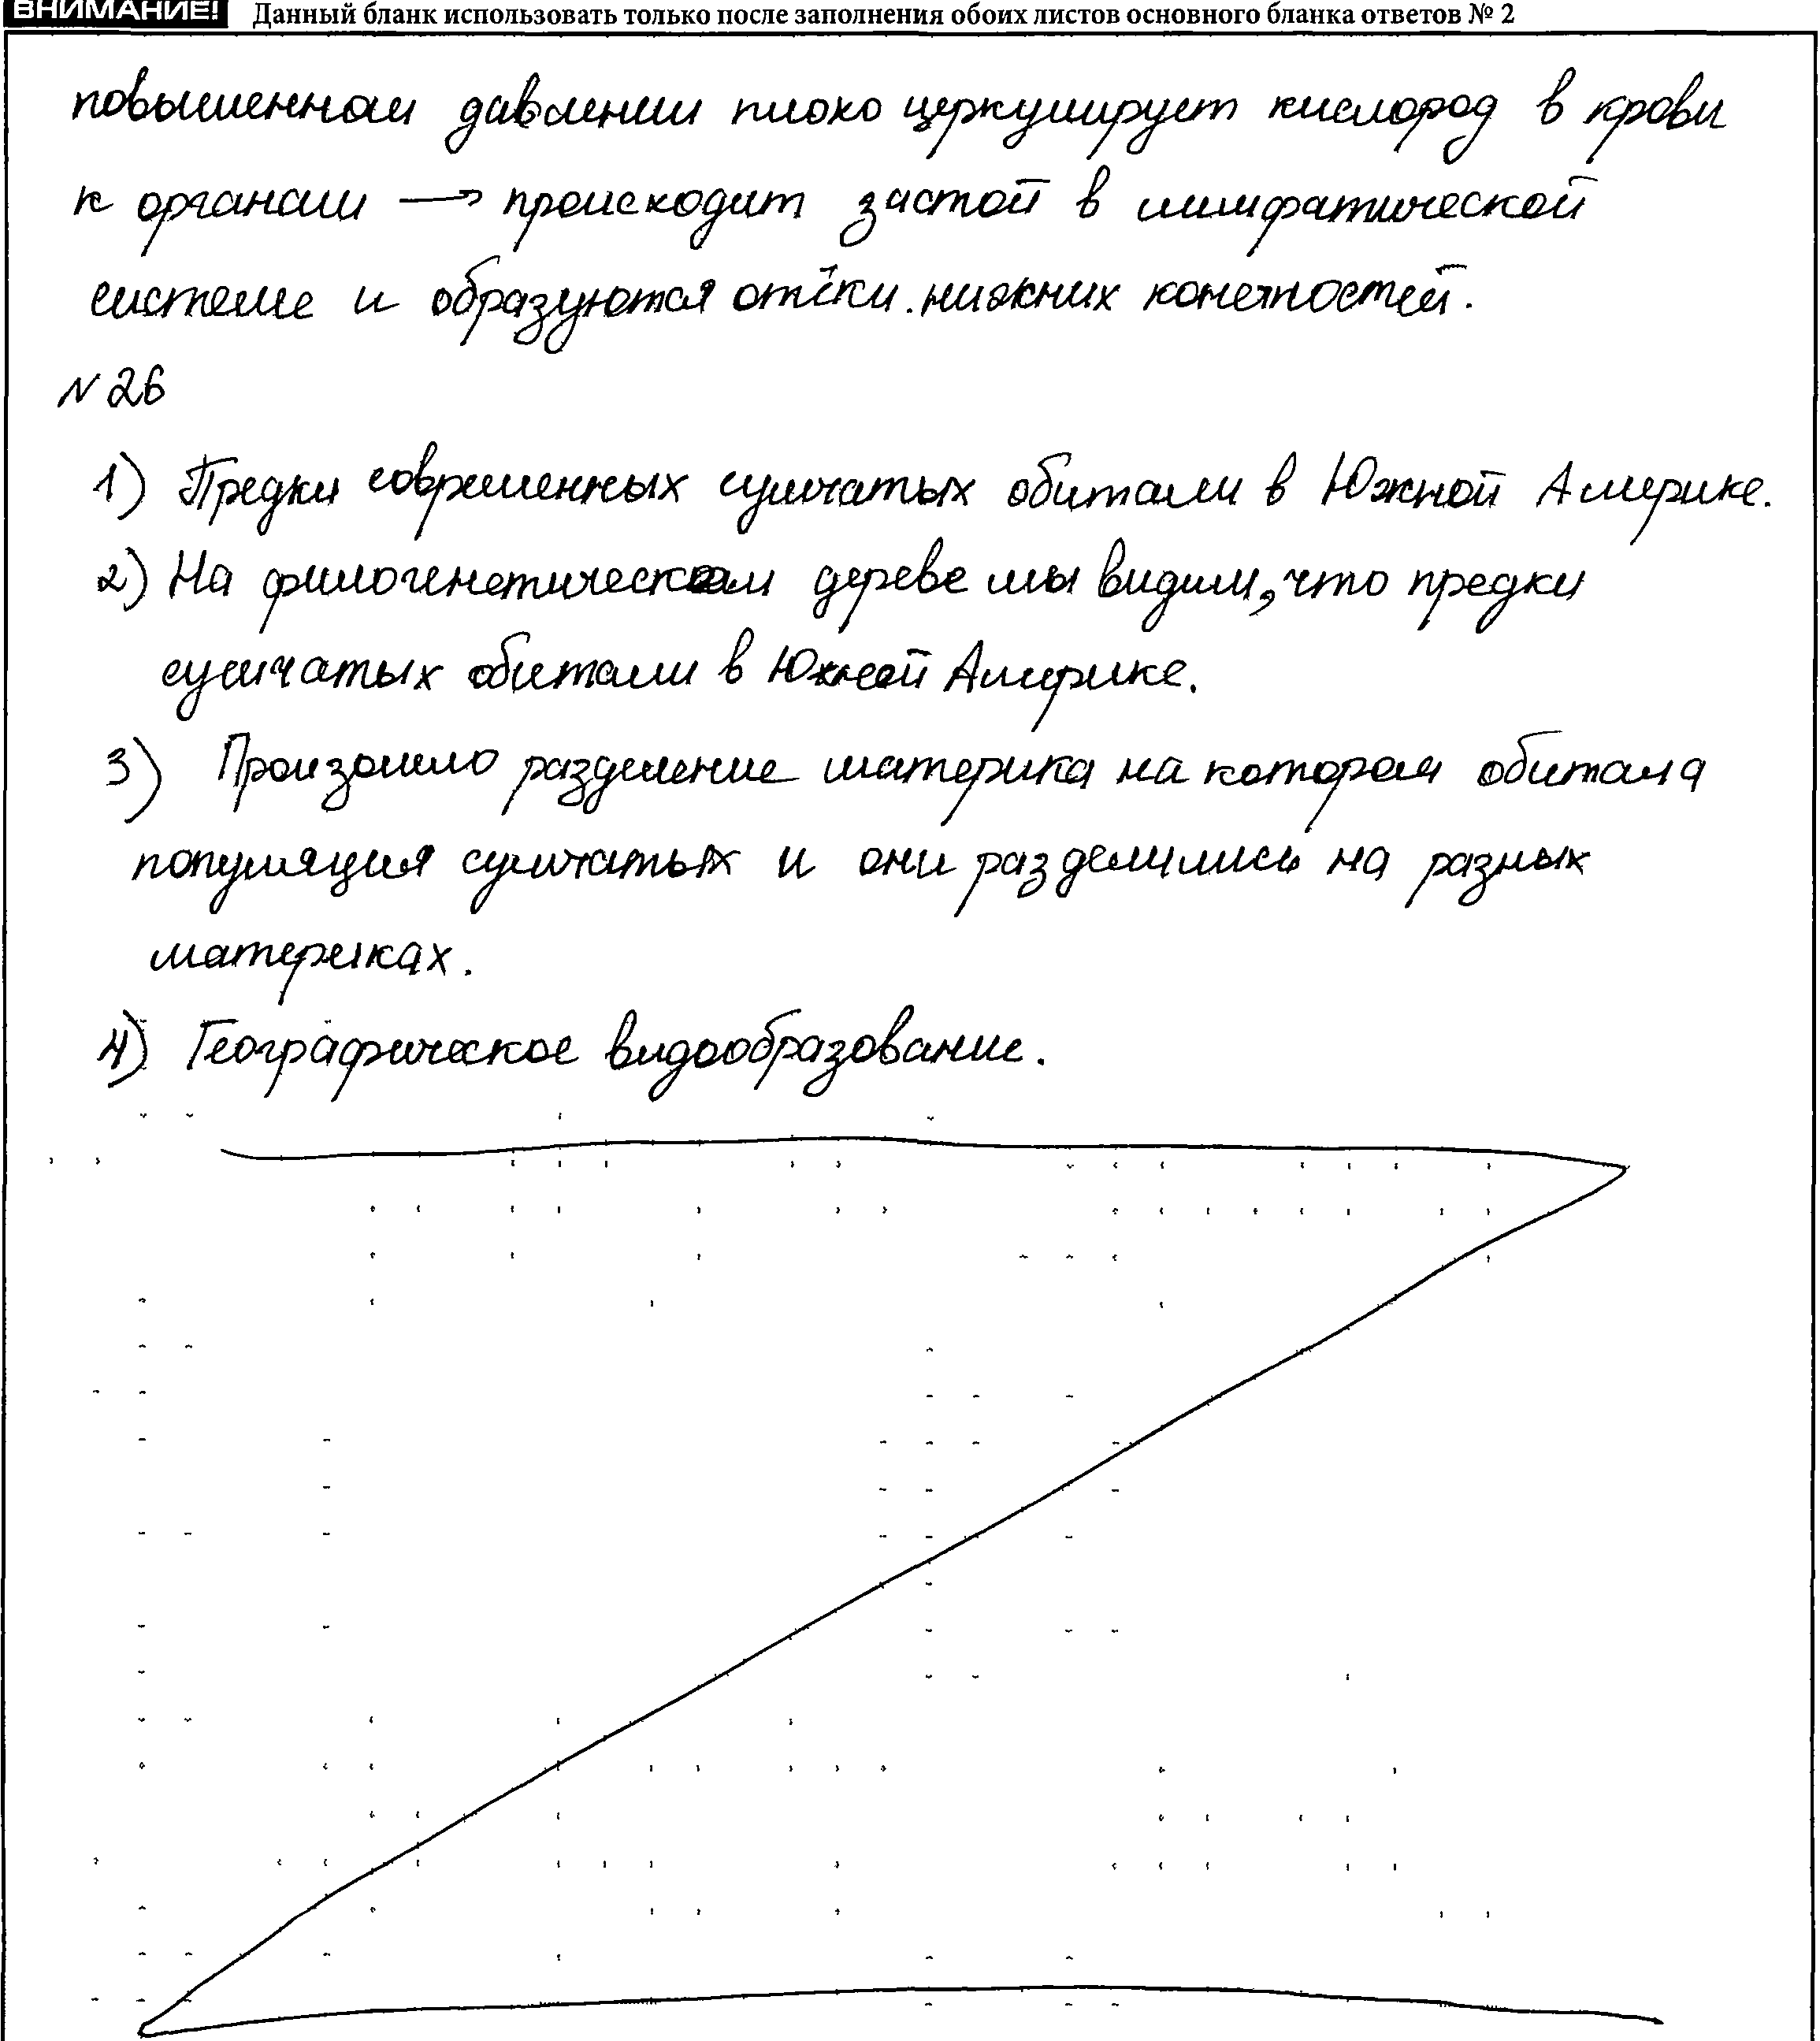 ВНИМАНИЕ! Данный бланк использовать только после заполнения обоих листов основного бланка ответов № 2
повышенном давлении плохо церкулирует кислород в крови
к органам → происходит застой в лимфатической
системе и образуются отёки нижних конечностей.
N 26
1) Предки современных сумчатых обитали в Южной Америке.
2) На филогенетическом дереве мы видим, что предки
сумчатых обитали в Южной Америке.
3) Произошло разделение материка на котором обитала
популяция сумчатых и они разделились на разных
материках.
4) Географическое видообразование.